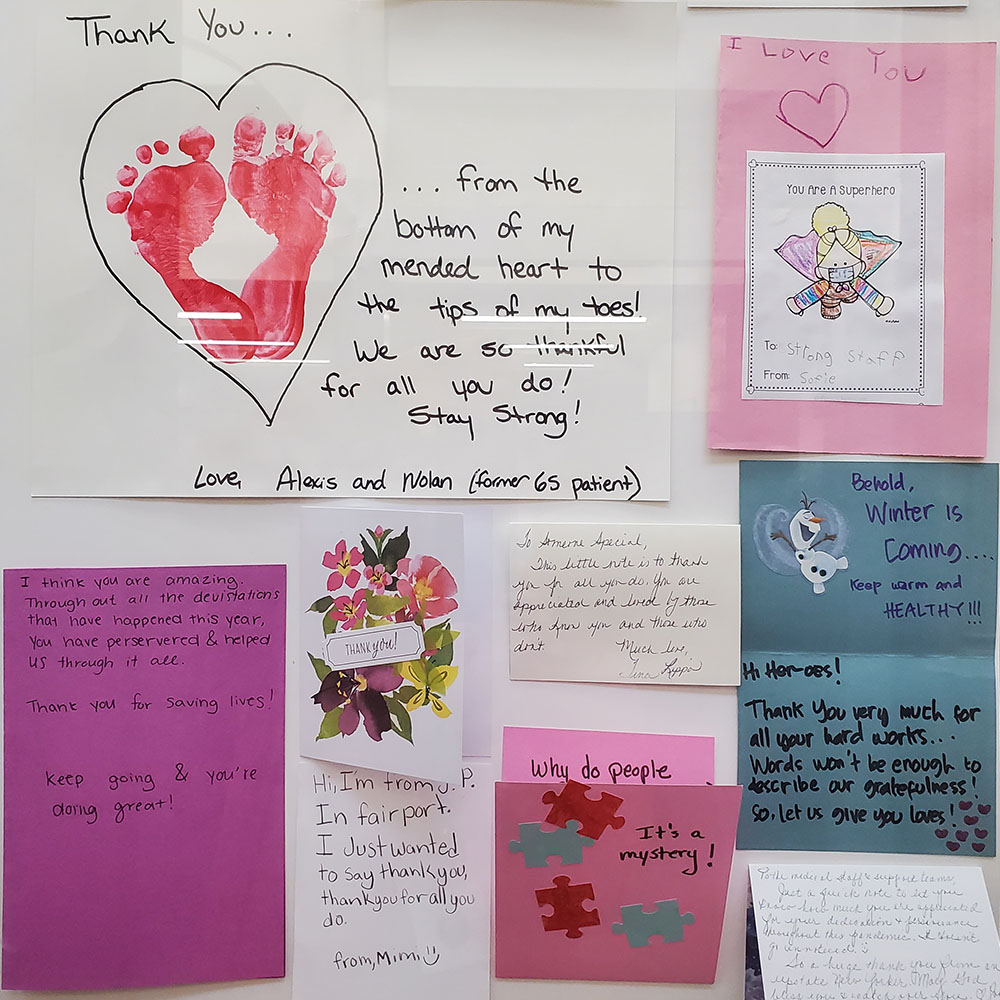 Thank You...
... from the
bottom of my
mended heart to
the tips of my toes!
We are so thankful
for all you do!
Stay Strong!
Love, Alexis and Nolan (former 65 patient)
I Love You
You Are A Superhero
To: Strong Staff
From: Sofie
I think you are amazing.
Through out all the devistations
that have happened this year,
You have perservered & helped
US through it all.
Thank you for saving lives!
Keep going & you're
doing great!
THANK you!
Hi, I'm from J.P.
In fairport.
I Just wanted
to say thank you,
thank you for all you
do.
from, Mimi
To Someone Special,
This little note is to thank
you for all you do. You are
appreciated and loved by those
who know you and those who
don't
Much love,
Tina
Why do people
It's a
mystery!
Behold,
Winter is
Coming....
Keep warm and
HEALTHY!!!
Hi Her-oes!
Thank You very much for
all your hard works...
Words won't be enough to
describe our gratefulness!
So, let us give you loves!
To the medical staff & support teams,
Just a quick note to let you
know how much you are appreciated
for your dedication & perseverance
throughout this pandemic. It doesn't
go unnoticed.
So a huge thank you from an
upstate New Yorker. May God
bless you &